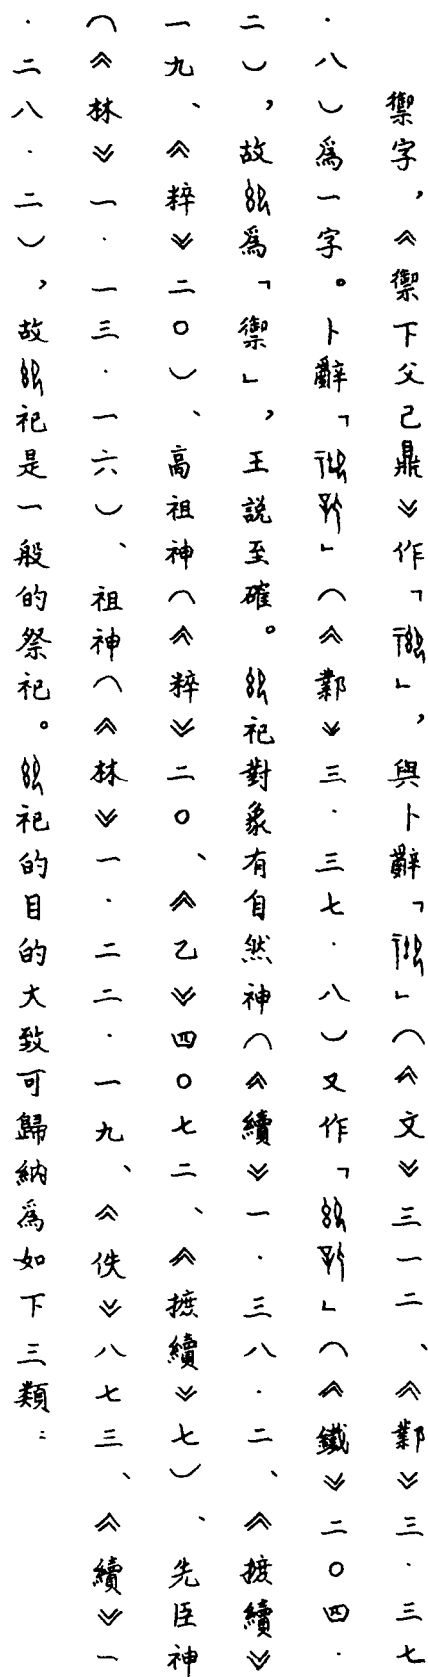 禦字，《禦下父己鼎》作「」，與卜辭「」（《文》三一二、《鄴》三·三七
·八）爲一字。卜辭「」（《鄴》三·三七·八）又作「」（《鐵》二〇四·
二），故爲「禦」，王説至確。祀對象有自然神（《續》一·三八·二、《摭續》
一九、《粹》二〇）、高祖神（《粹》二〇、《乙》四〇七二、《摭續》七）、先臣神
（《林》一·一三·一六）、祖神（《林》一·二二·一九、《佚》八七三、《續》一
·二八·二），故祀是一般的祭祀。祀的目的大致可歸納爲如下三類：